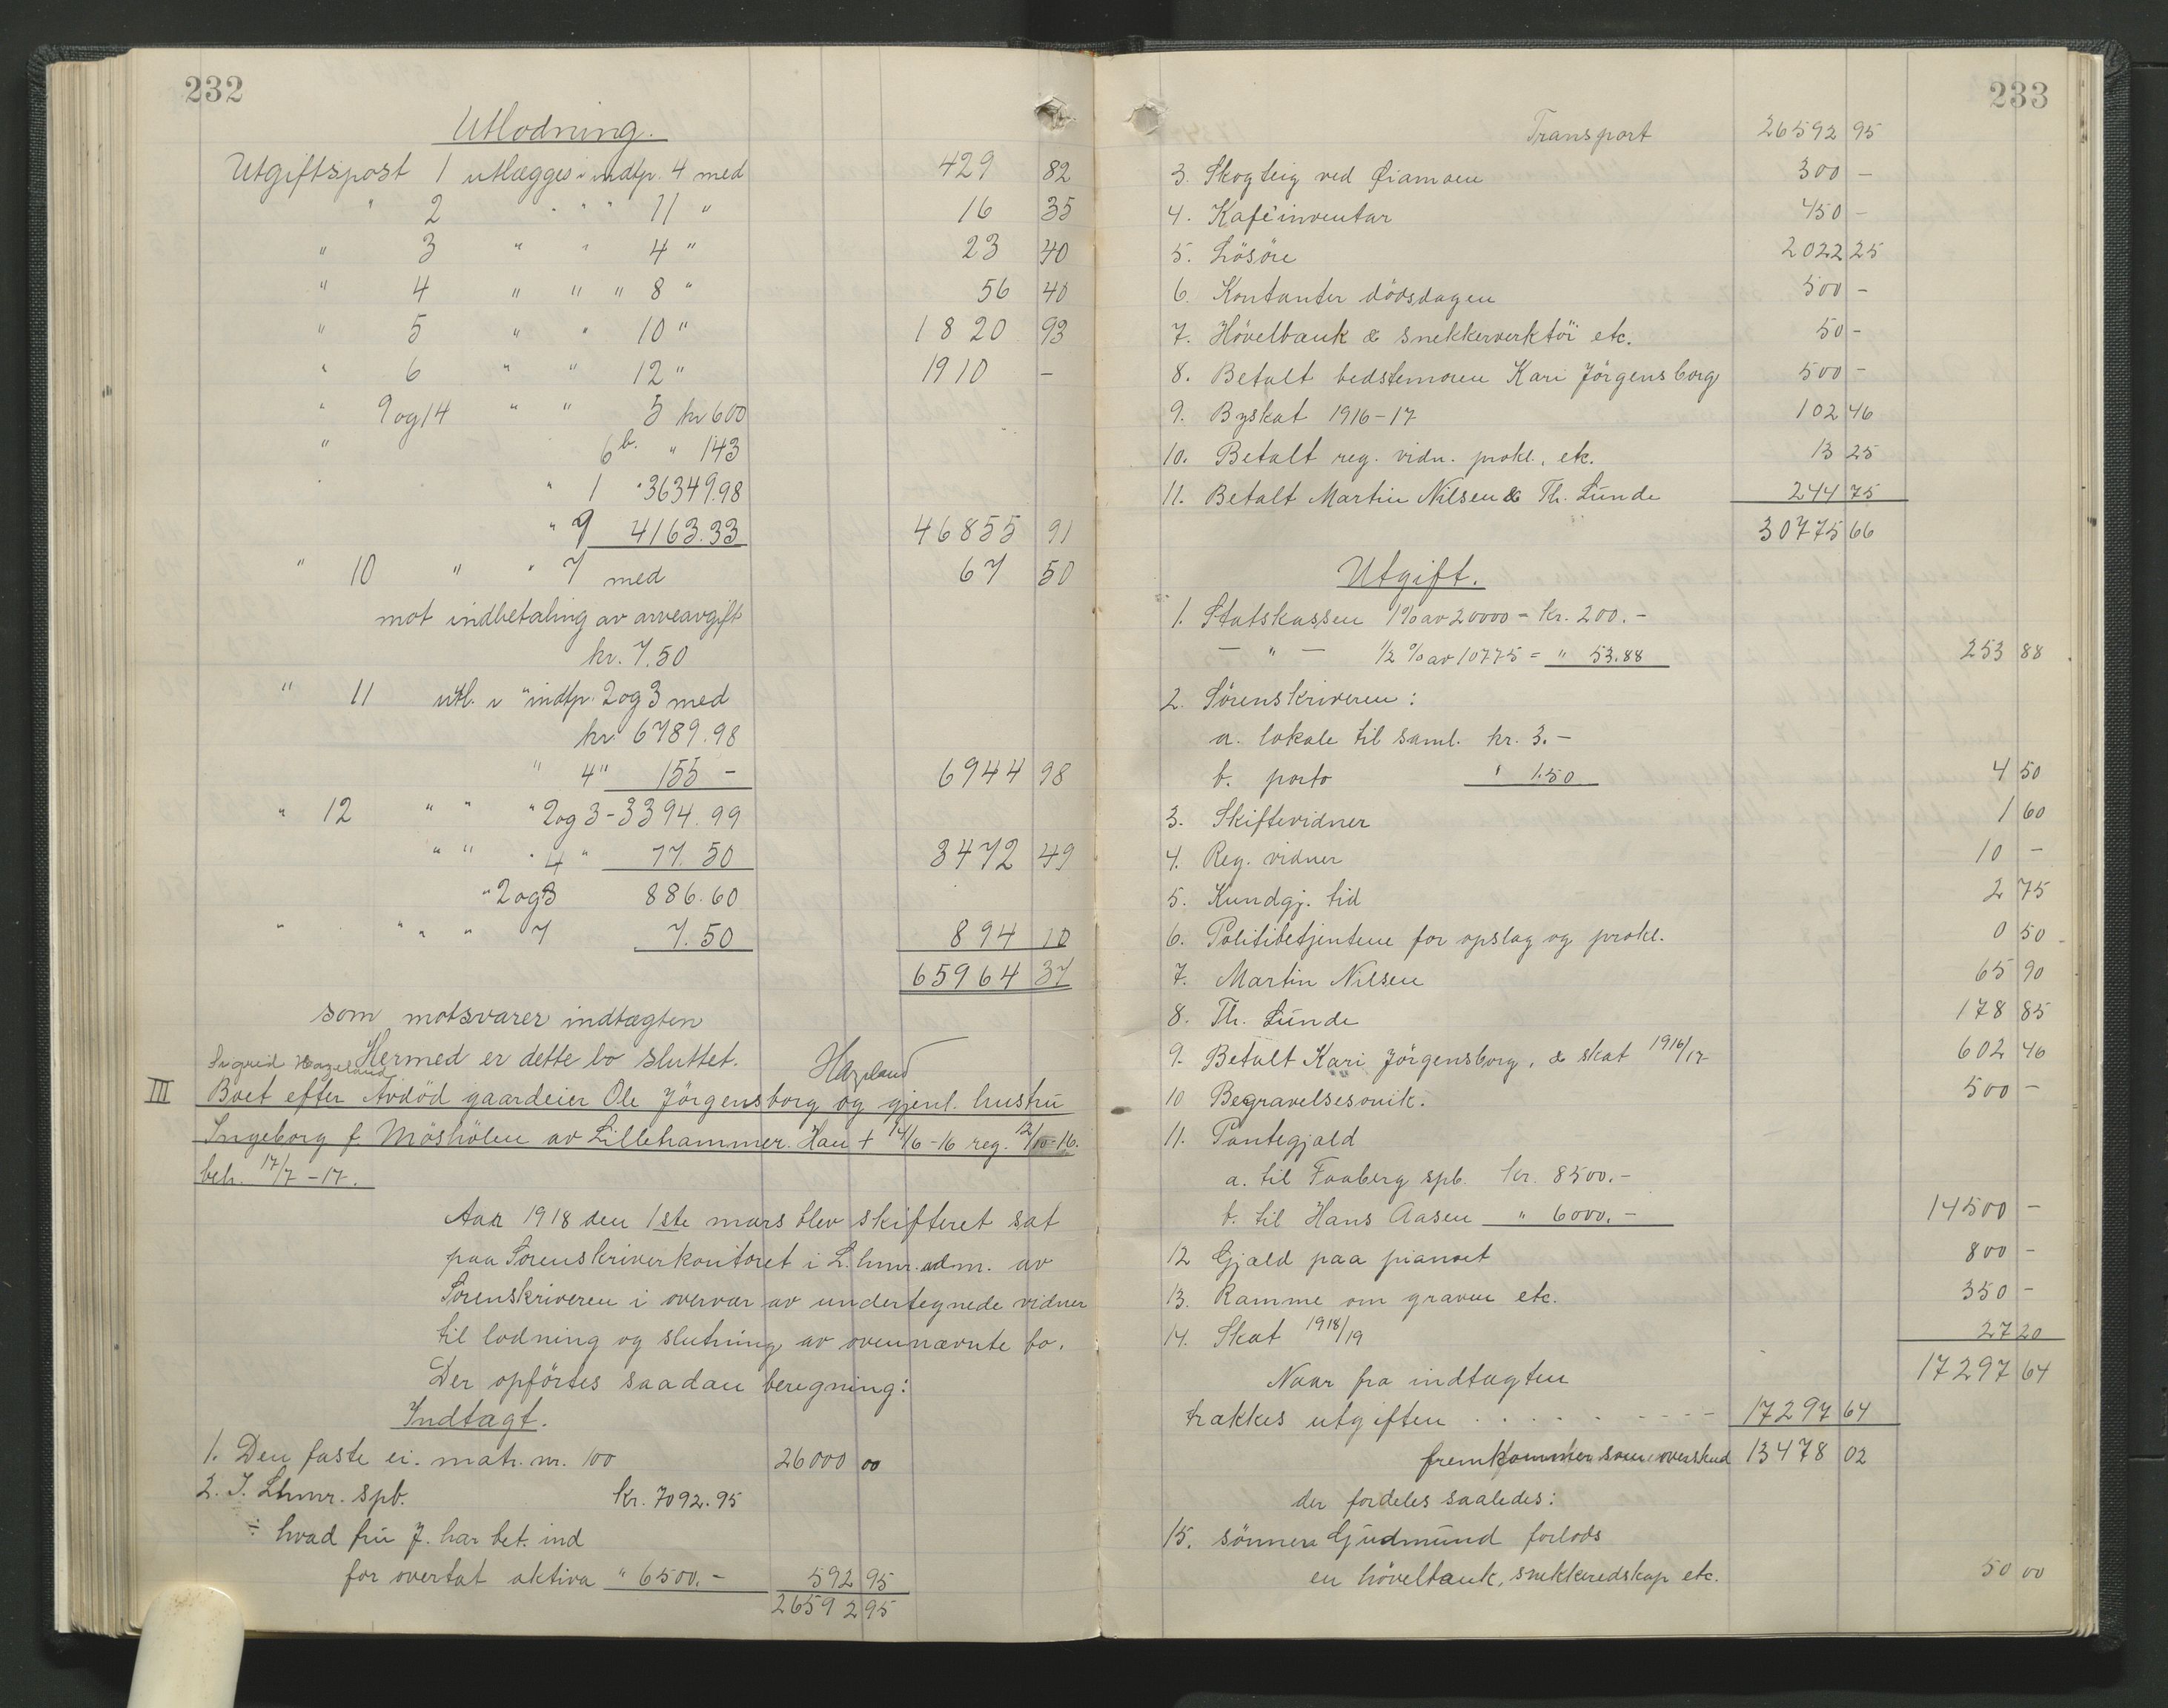 232
Utlodning.
Utgiftspost 1 utlægges i indtp. 4 med 429 82
" 2 " " " 11 " 16 35
" 3 " " 4 " 23 40
" 4 " " " 8 " 56 40
" 5 " " 10 " 1820 93
" 6 " " 12 " 1910 -
" 9 og 14 " " 5 kr 600
" 6 b. " 143
" 1 " 36349.98
" 9 4163.33 46855 91
" 10 " " 7 med 67 50
mot indbetaling av arveavgift
kr. 7.50
" 11 utl. i indtp. 2 og 3 med
kr. 6789.98
" 4 " 155 - 6944 98
" 12 " " " 2 og 3 - 3394.99
" " " 4 " 77.50 3472 49
" 2 og 3 886.60
" " " " 7 7.50 894 10
65964 37
som motsvarer indtægten
Hermed er dette bo sluttet.
Sigrid Hazeland Hazeland
III Boet efter Avdöd gaardeier Ole Jörgensborg og gjenl. hustru
Ingeborg f. Möshölen av Lillehammer. Han + 14/6-16 reg. 12/10-16.
beh. 17/7-17.
Aar 1918 den 1ste mars blev skifteret sat
paa Sorenskriverkontoret i L.hmr. adm. av
Sorenskriveren i overvær av undertegnede vidner
til lodning og slutning av ovennævnte bo.
Der opförtes saadan beregning:
Indtægt.
1. Den faste ei. matr. nr. 100 26000 00
2. I. Lhmr. spb. kr. 7092.95
÷ hvad fru J. har bet. ind
for overtat aktiva " 6500.- 592 95
26592 95
233
Transport 26592 95
3. Skogteig ved Öiamoen 300 -
4. Kaféinventar 450 -
5. Lösöre 2022 25
6. Kontanter dödsdagen 500 -
7. Hövelbænk & snekkerverktöi etc. 50 -
8. Betalt bedstemoren Kari Jörgensborg 500 -
9. Byskat 1916-17 102 46
10. Betalt reg. vidn. prokl., etc. 13 25
11. Betalt Martin Nilsen & Th. Lunde 244 75
30775 66
Utgift.
1. Statskassen 1% av 20000 = kr. 200.-
- " - 1/2 % av 10775 = " 53.88 253 88
2. Sorenskriveren:
a. lokale til saml. kr. 3.-
b. porto " 1.50 4 50
3. Skiftevidner 1 60
4. Reg. vidner 10 -
5. Kundgj. tid 2 75
6. Politibetjentene for opslag og prokl. 0 50
7. Martin Nilsen 65 90
8. Th. Lunde 178 85
9. Betalt Kari Jörgensborg, & skat 1916/17 602 46
10 Begravelsesomk. 500 -
11. Pantegjæld
a. til Faaberg spb. kr. 8500.-
b. til Hans Aasen " 6000.- 14500 -
12 Gjæld paa pianoet 800 -
13. Ramme om graven etc. 350 -
14. Skat 1918/19 27 20
17297 64
Naar fra indtægten
trækkes utgiften . . . . . . . . . 17297 64
fremkommer som overskud 13478 02
der fordeles saaledes:
15. sönnen Gudmund forlods
en hövelbænk, snekkeredskap etc. 50 00